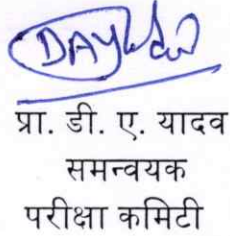 DAYadav
प्रा. डी. ए. यादव
समन्वयक
परीक्षा कमिटी